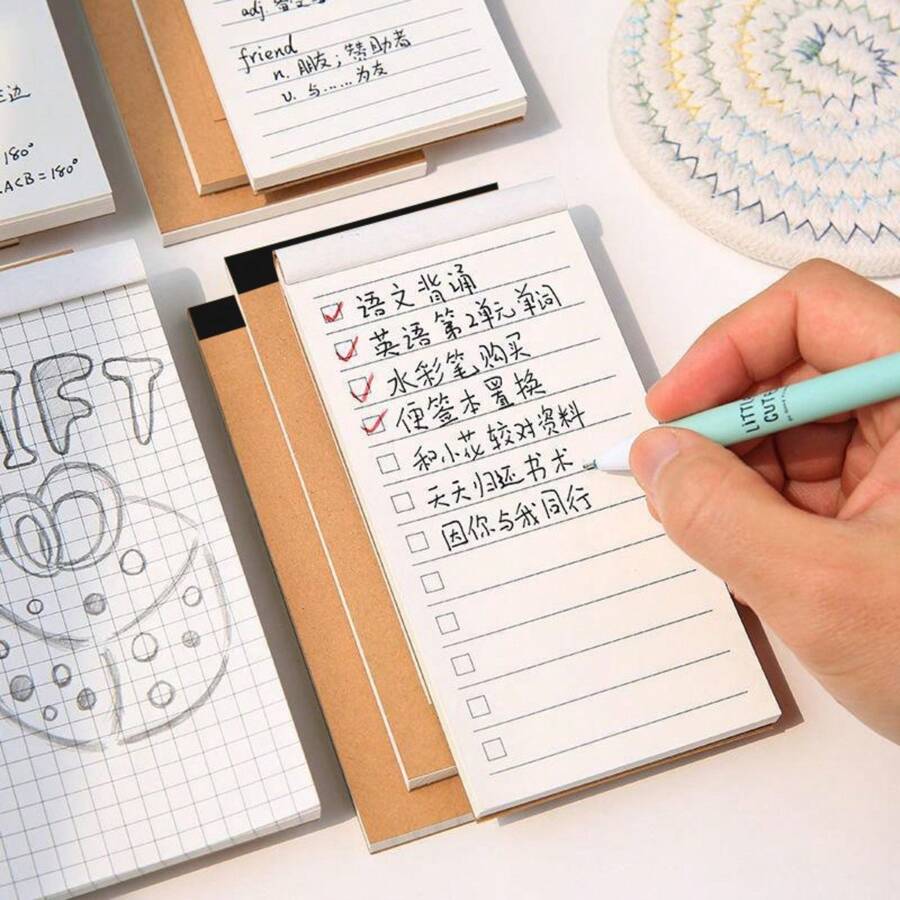 friend
n. 朋友；赞助者
v. 与……为友
180°
ACB=180°
IFT
语文背诵
英语第2单元单词
水彩笔购买
便签本置换
和小花较对资料
天天归还书术
因你与我同行
LITTLE
CUTE